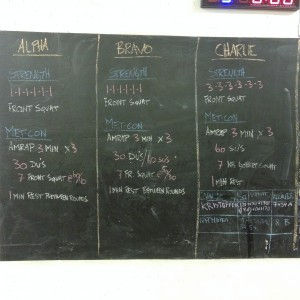 ALPHA
STRENGTH
1-1-1-1-1-1
FRONT SQUAT
METCON
AMRAP 3 MIN x 3
30 DU'S
7 FRONT SQUAT
1 MIN REST BETWEEN ROUNDS
BRAVO
STRENGTH
1-1-1-1-1
FRONT SQUAT
METCON
AMRAP 3 MIN x 3
30 DU'S/
7 FR. SQUAT
1 MIN REST BETWEEN ROUNDS
CHARLIE
STRENGTH
3-3-3-3-3-3
FRONT SQUAT
METCON
AMRAP 3 MIN x 3
60 SU'S
7 KB GOBLET SQUAT
1 MIN REST